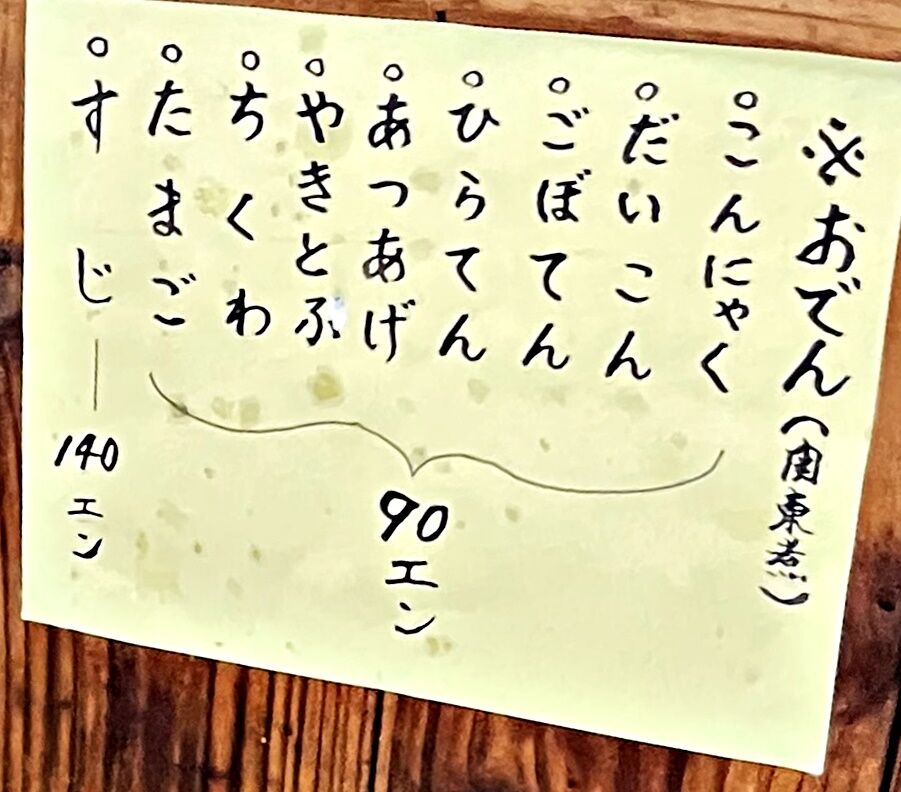 ※おでん(関東煮)
○こんにゃく
○だいこん
○ごぼてん
○ひらてん
○あつあげ
○やきとふ
○ちくわ
○たまご
90エン
○すじ―140エン